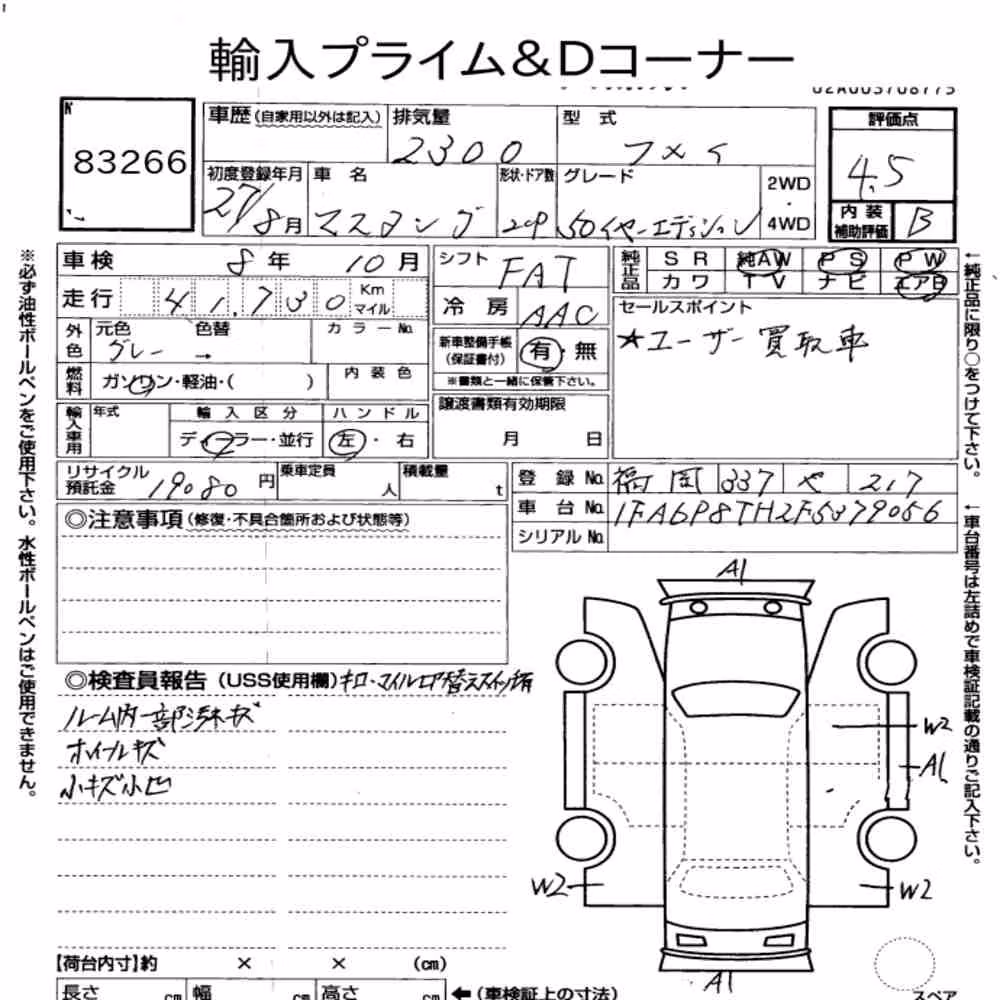 輸入プライム&Dコーナー
83266
車歴 (自家用以外は記入) 排気量 型式
2300 フメイ
評価点
4.5
初度登録年月 車名 形状・ドア数 グレード 2WD・4WD
27/8月 マスタング 2ｸP 50イヤーエディション
内装補助評価 B
車検 8年 10月
シフト FAT
純正品 SR 純AW PS PW
カワ TV ナビ エアB
走行 41,730 Km マイル
冷房 AAC
セールスポイント
★ユーザー買取車
外色 元色 色替 カラーNo.
グレー →
新車整備手帳 (保証書付) 有・無
※書類と一緒に保管下さい。
燃料 ガソリン・軽油・( ) 内装色
輸入車用 年式 輸入区分 ハンドル
ディーラー・並行 左・右
譲渡書類有効期限
月 日
リサイクル預託金 19080円 乗車定員 人 積載量 t
登録No. 福岡 337 や 217
車台No. 1FA6P8TH2F5379056
シリアルNo.
◎注意事項 (修復・不具合箇所および状態等)
◎検査員報告 (USS使用欄) キロ・マイル切替えスイッチ有
ルーム内一部汚れキズ
ホイールキズ
小キズ小凹
A1
W2
A1
W2
W2
A1
【荷台内寸】約 × × (cm)
長さ cm 幅 cm 高さ cm ←(車検証上の寸法)
スペア
※必ず油性ボールペンをご使用下さい。水性ボールペンはご使用できません。
←純正品に限り○をつけて下さい。
←車台番号は左詰めで車検証記載の通りご記入下さい。